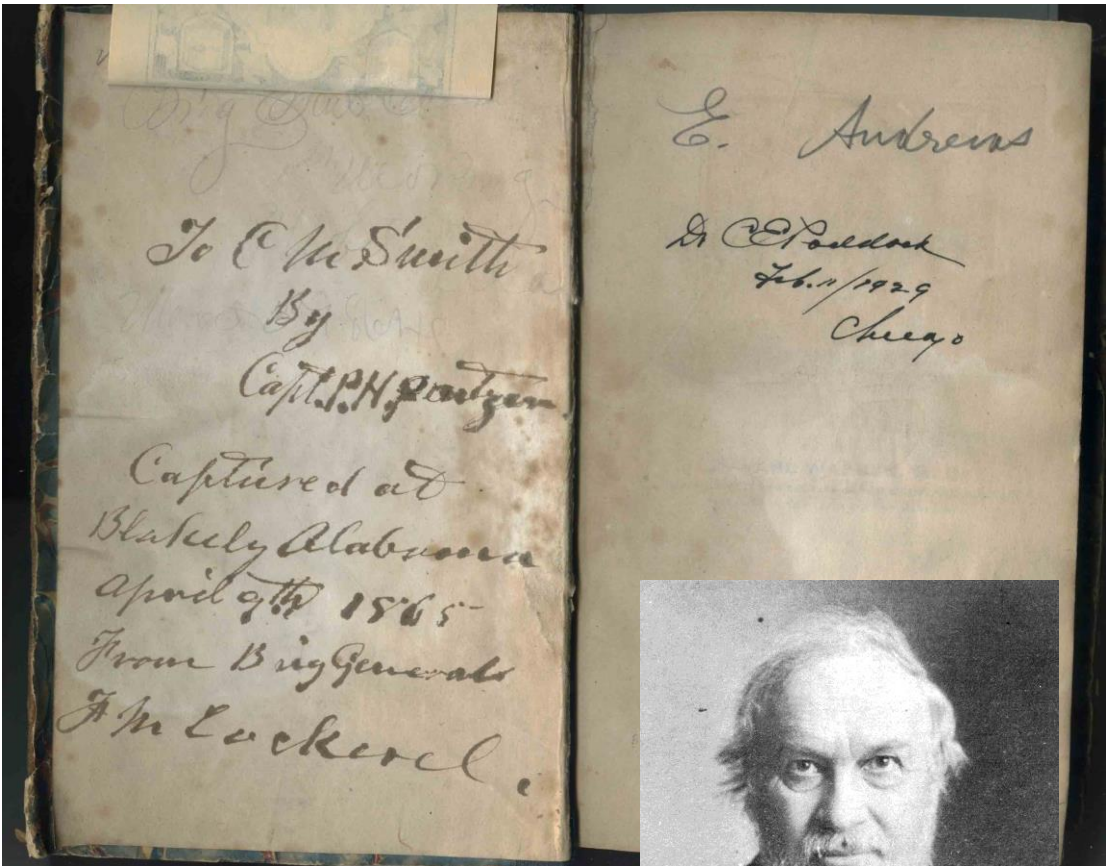 To C M Smith
By
Capt. P. H. Pentzer
Captured at
Blakely Alabama
April 9th 1865
From Brig General
F M Cockerel.
E. Andrews
Dr C E Paddock
Feb. 11/1929
Chicago